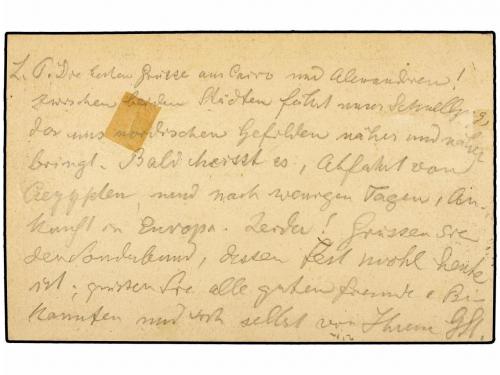 L. P. Die besten Grüsse aus Cairo und Alexandrien!
Zwischen beiden Städten fährt unser Schnellzug,
der uns nordischen Gefilden näher und näher
bringt. Bald heisst es, Abfahrt von
Aegypten, und nach wenigen Tagen, An-
kunft in Europa. Leider! Grüssen Sie
den Sonderbund, dessen Fest wohl heute
ist, grüssen Sie alle guten Freunde & Be-
kannten und sich selbst von Ihrem